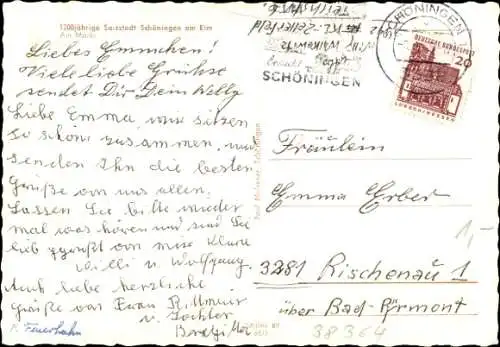 1200jährige Salzstadt Schöningen am Elm
Am Markt
Liebes Emmchen!
Viele liebe Grüße
sendet Dir Dein Willy
Liebe Emma wir sitzen
so schön zusammen, und
senden Ihn die besten
Grüße von uns allen.
Lassen Sie bitte wieder
mal was hören und sind Sie
lieb gegrüßt von
Willi u. Wolfgang.
Auch liebe herzliche
Grüße von Frau
u. Tochter
F. Feuerhahn
SCHÖNINGEN
SCHÖNINGEN
DEUTSCHE BUNDESPOST
20
LORSCH/HESSEN
Fräulein
Emma Erber
3281 Rischenau 1
über Bad-Pyrmont
1,-
38364